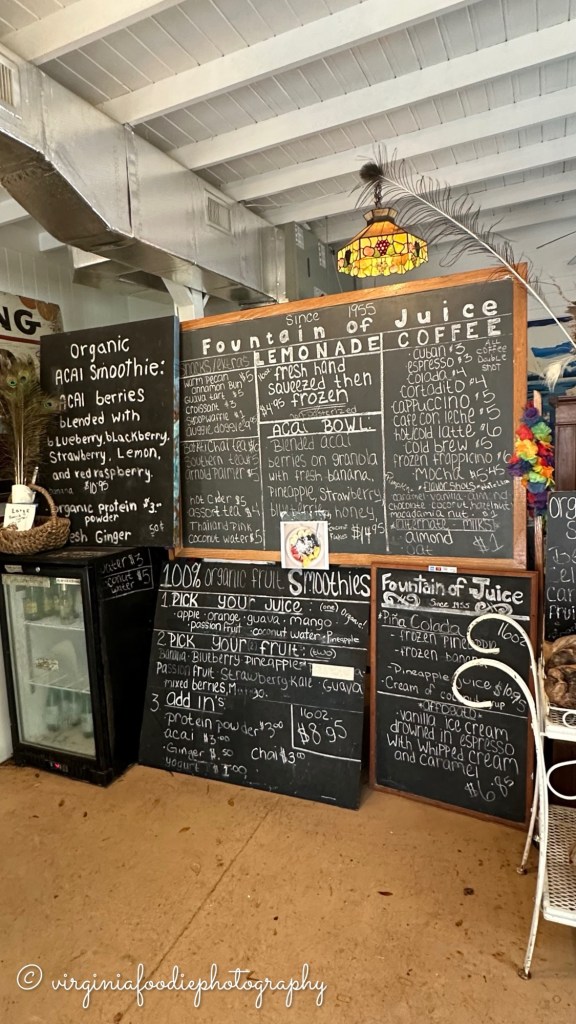 NG
Organic
ACAI Smoothie:
ACAI berries
blended with
blueberry, blackberry,
Strawberry, Lemon,
and red raspberry.
$10.95
organic protein $3.--
powder
Fresh Ginger 50¢
Large
Since 1955
Fountain of Juice
warm Pecan $5
cinnamon Bun
Guava tart $5
croissant $3
$5
Southern tea $5
arnold palmer $5
hot Cider $5
assort tea $4
Thailand Pink
Coconut water $5
LEMONADE
16oz fresh hand
squeezed then
$4.95 frozen
ACAI BOWL:
Blended acai
berries on granola
with fresh banana,
pineapple, strawberry,
blueberry, honey,
$14.95
COFFEE
ALL
COFFEE
Double
SHOT
Cuban $3
espresso $3
Colada $4
cortadito $4
cappuccino $5
cafe con leche $5
hot/cold latte $6
cold brew $5
frozen frappicino $6
Mocha $5.45
Flavor Shots
caramel - vanilla - almond
chocolate coconut hazelnut
macadamia nut
alternate milks
almond $1
oat
water $3
Coconut $5
water
100% organic fruit Smoothies
1. PICK your juice: (one) Organic!
·apple ·orange ·guava ·mango
·passion fruit ·coconut water ·Pineapple
2. PICK your fruit: (two)
Banana · Blueberry Pineapple
Passion fruit Strawberry Kale · Guava
mixed berries,
3 add in's
protein powder $3.00
acai $3.00
·Ginger $.50 Chai $3.00
yogurt $1.00
16oz.
$8.95
Fountain of Juice
Since 1955
*Piña Colada 16oz
- frozen
- frozen banana
- Pineapple juice $10.95
- Cream of coconut
*AFFOGATO*
-vanilla ice cream
drowned in espresso
with whipped cream
and caramel
$6.85
© virginiafoodiephotography